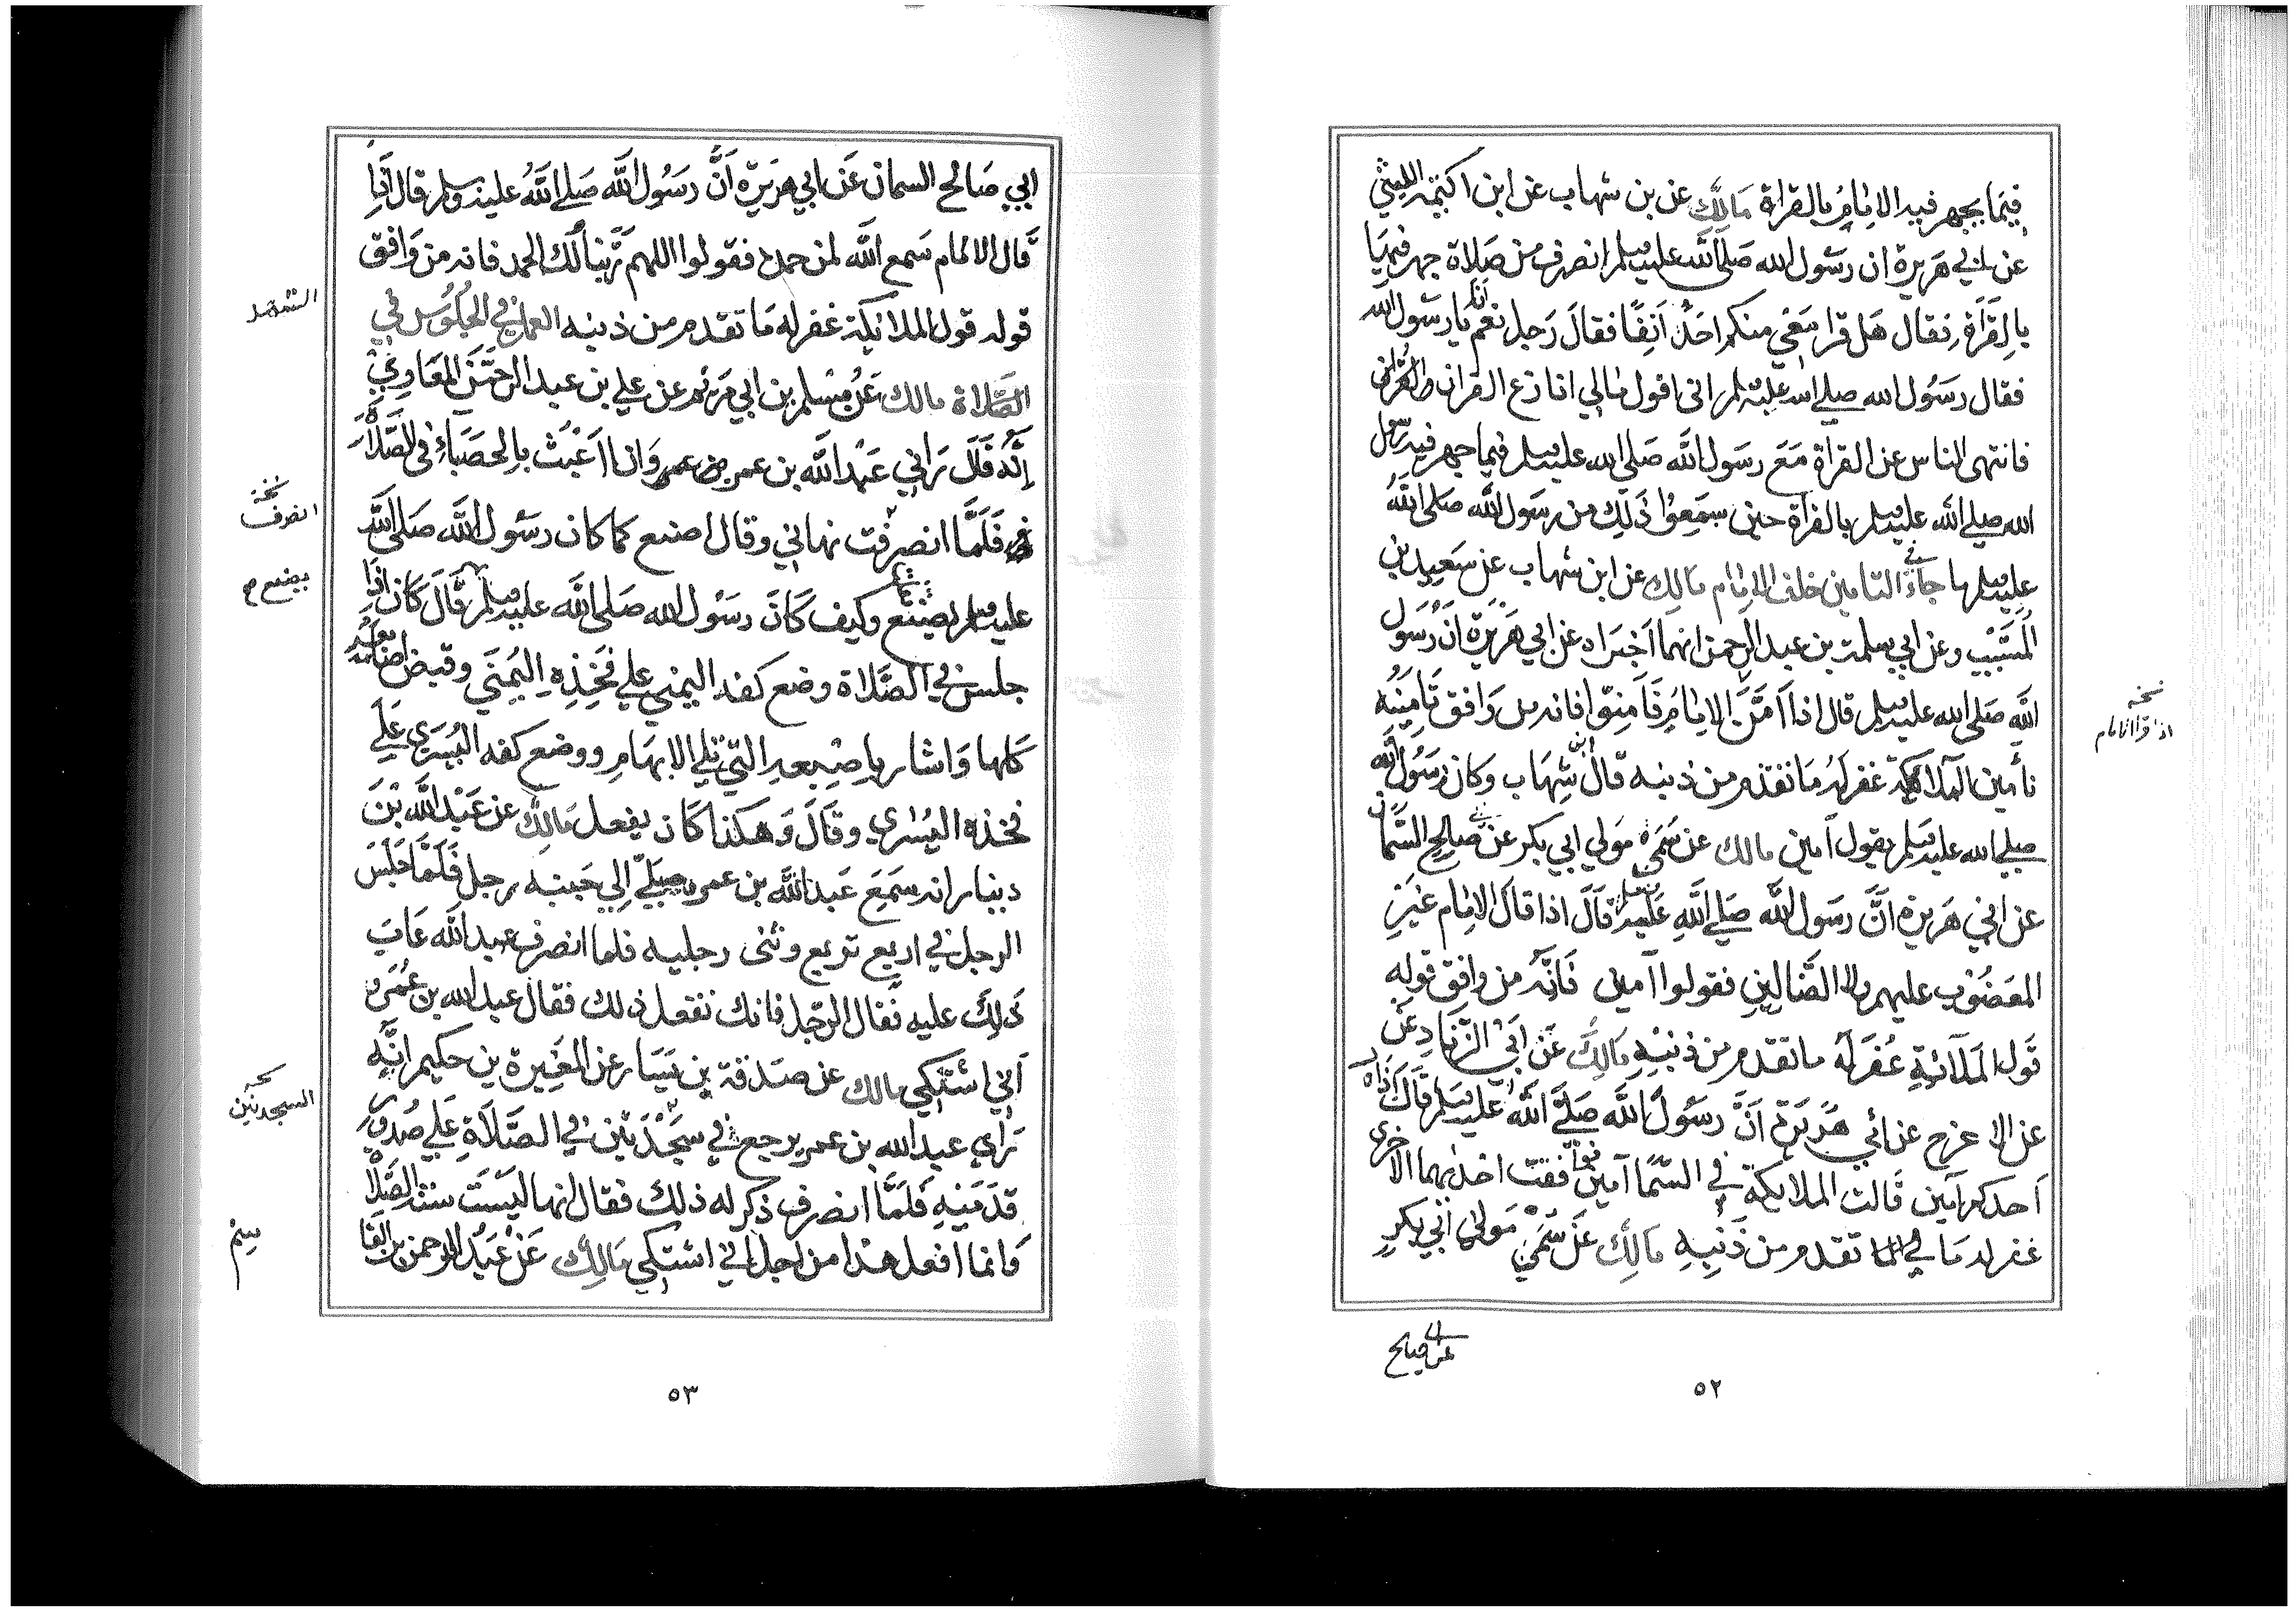 فيما يجهر فيه الامام بالقراة مالك عن بن شهاب عن ابن اكيمة الليثي
عن ابي هريرة ان رسول الله صلى الله عليه وسلم انصرف من صلاة جهر فيها
بالقراة فقال هل قرا معي منكم احد آنفا فقال رجل نعم انا يا رسول الله
فقال رسول الله صلي الله عليه وسلم اني اقول مالي انازع القران
فانتهى الناس عن القراة مع رسول الله صلى الله عليه وسلم فيما جهر فيه رسول
الله صلي الله عليه وسلم بالقراة حين سمعوا ذلك من رسول الله صلى الله
عليه وسلم ما جاء في التامين خلف الامام مالك عن ابن شهاب عن سعيد بن
المسيب وعن ابي سلمة بن عبد الرحمن انهما اخبراه عن ابي هريرة ان رسول
الله صلى الله عليه وسلم قال اذا امن الامام فامنوا فانه من وافق تامينه
نسخة
تأمين الملائكة غفر له ما تقدم من ذنبه قال ابن شهاب وكان رسول الله
صلي الله عليه وسلم يقول آمين مالك عن سمي مولي ابي بكر عن ابي صالح السمان
عن ابي هريرة ان رسول الله صلي الله عليه وسلم قال اذا قال الامام غير
المغضوب عليهم ولا الضالين فقولوا آمين فانه من وافق قوله
قول الملائكة غفر له ما تقدم من ذنبه مالك عن ابي الزناد عن
عن الاعرج عن ابي هريرة ان رسول الله صلى الله عليه وسلم قال اذا قال
احدكم آمين قالت الملايكة في السما آمين فوافقت احداهما الاخرى
غفر له ما تقدم من ذنبه مالك عن سمي مولى ابي بكر
عن ابي صالح
٥٢
ابي صالح السمان عن ابي هريرة ان رسول الله صلي الله عليه وسلم قال اذا
قال الامام سمع الله لمن حمده فقولوا اللهم ربنا لك الحمد فانه من وافق
قوله قول الملائكة غفر له ما تقدم من ذنبه العمل في الجلوس في
التشهد
الصلاة مالك عن مسلم بن ابي مريم عن علي بن عبد الرحمن المعاوي
انه قال راني عبد الله بن عمر وانا اعبث بالحصباء في الصلاة
فلما انصرفت نهاني وقال اصنع كما كان رسول الله صلى الله
نسخة
انصرف
عليه وسلم يصنع وكيف كان رسول الله صلى الله عليه وسلم قال كان اذا
يصنع
جلس في الصلاة وضع كفه اليمني علي فخذه اليمنى وقبض اصابعه
كلها واشار باصبعه التي تلي الابهام ووضع كفه اليسرى علي
فخذه اليسري وقال وهكذا كان يفعل مالك عن عبد الله بن
دينار انه سمع عبد الله بن عمر وصلي الي جنبه رجل فلما جلس
الرجل في اربع تربع وثنى رجليه فلما انصرف عبد الله عاب
ذلك عليه فقال الرجل فانك تفعل ذلك فقال عبد الله بن عمر
اني اشتكي مالك عن صدقة بن يسار عن المغيرة بن حكيم انه
راي عبد الله بن عمر يرجع في سجدتين في الصلاة علي صدور
نسخة
السجدتين
قدميه فلما انصرف ذكر له ذلك فقال انها ليست سنة الصلاة
وانما افعل هذا من اجل اني اشتكي مالك عن عبد الرحمن بن القا
سم
٥٣